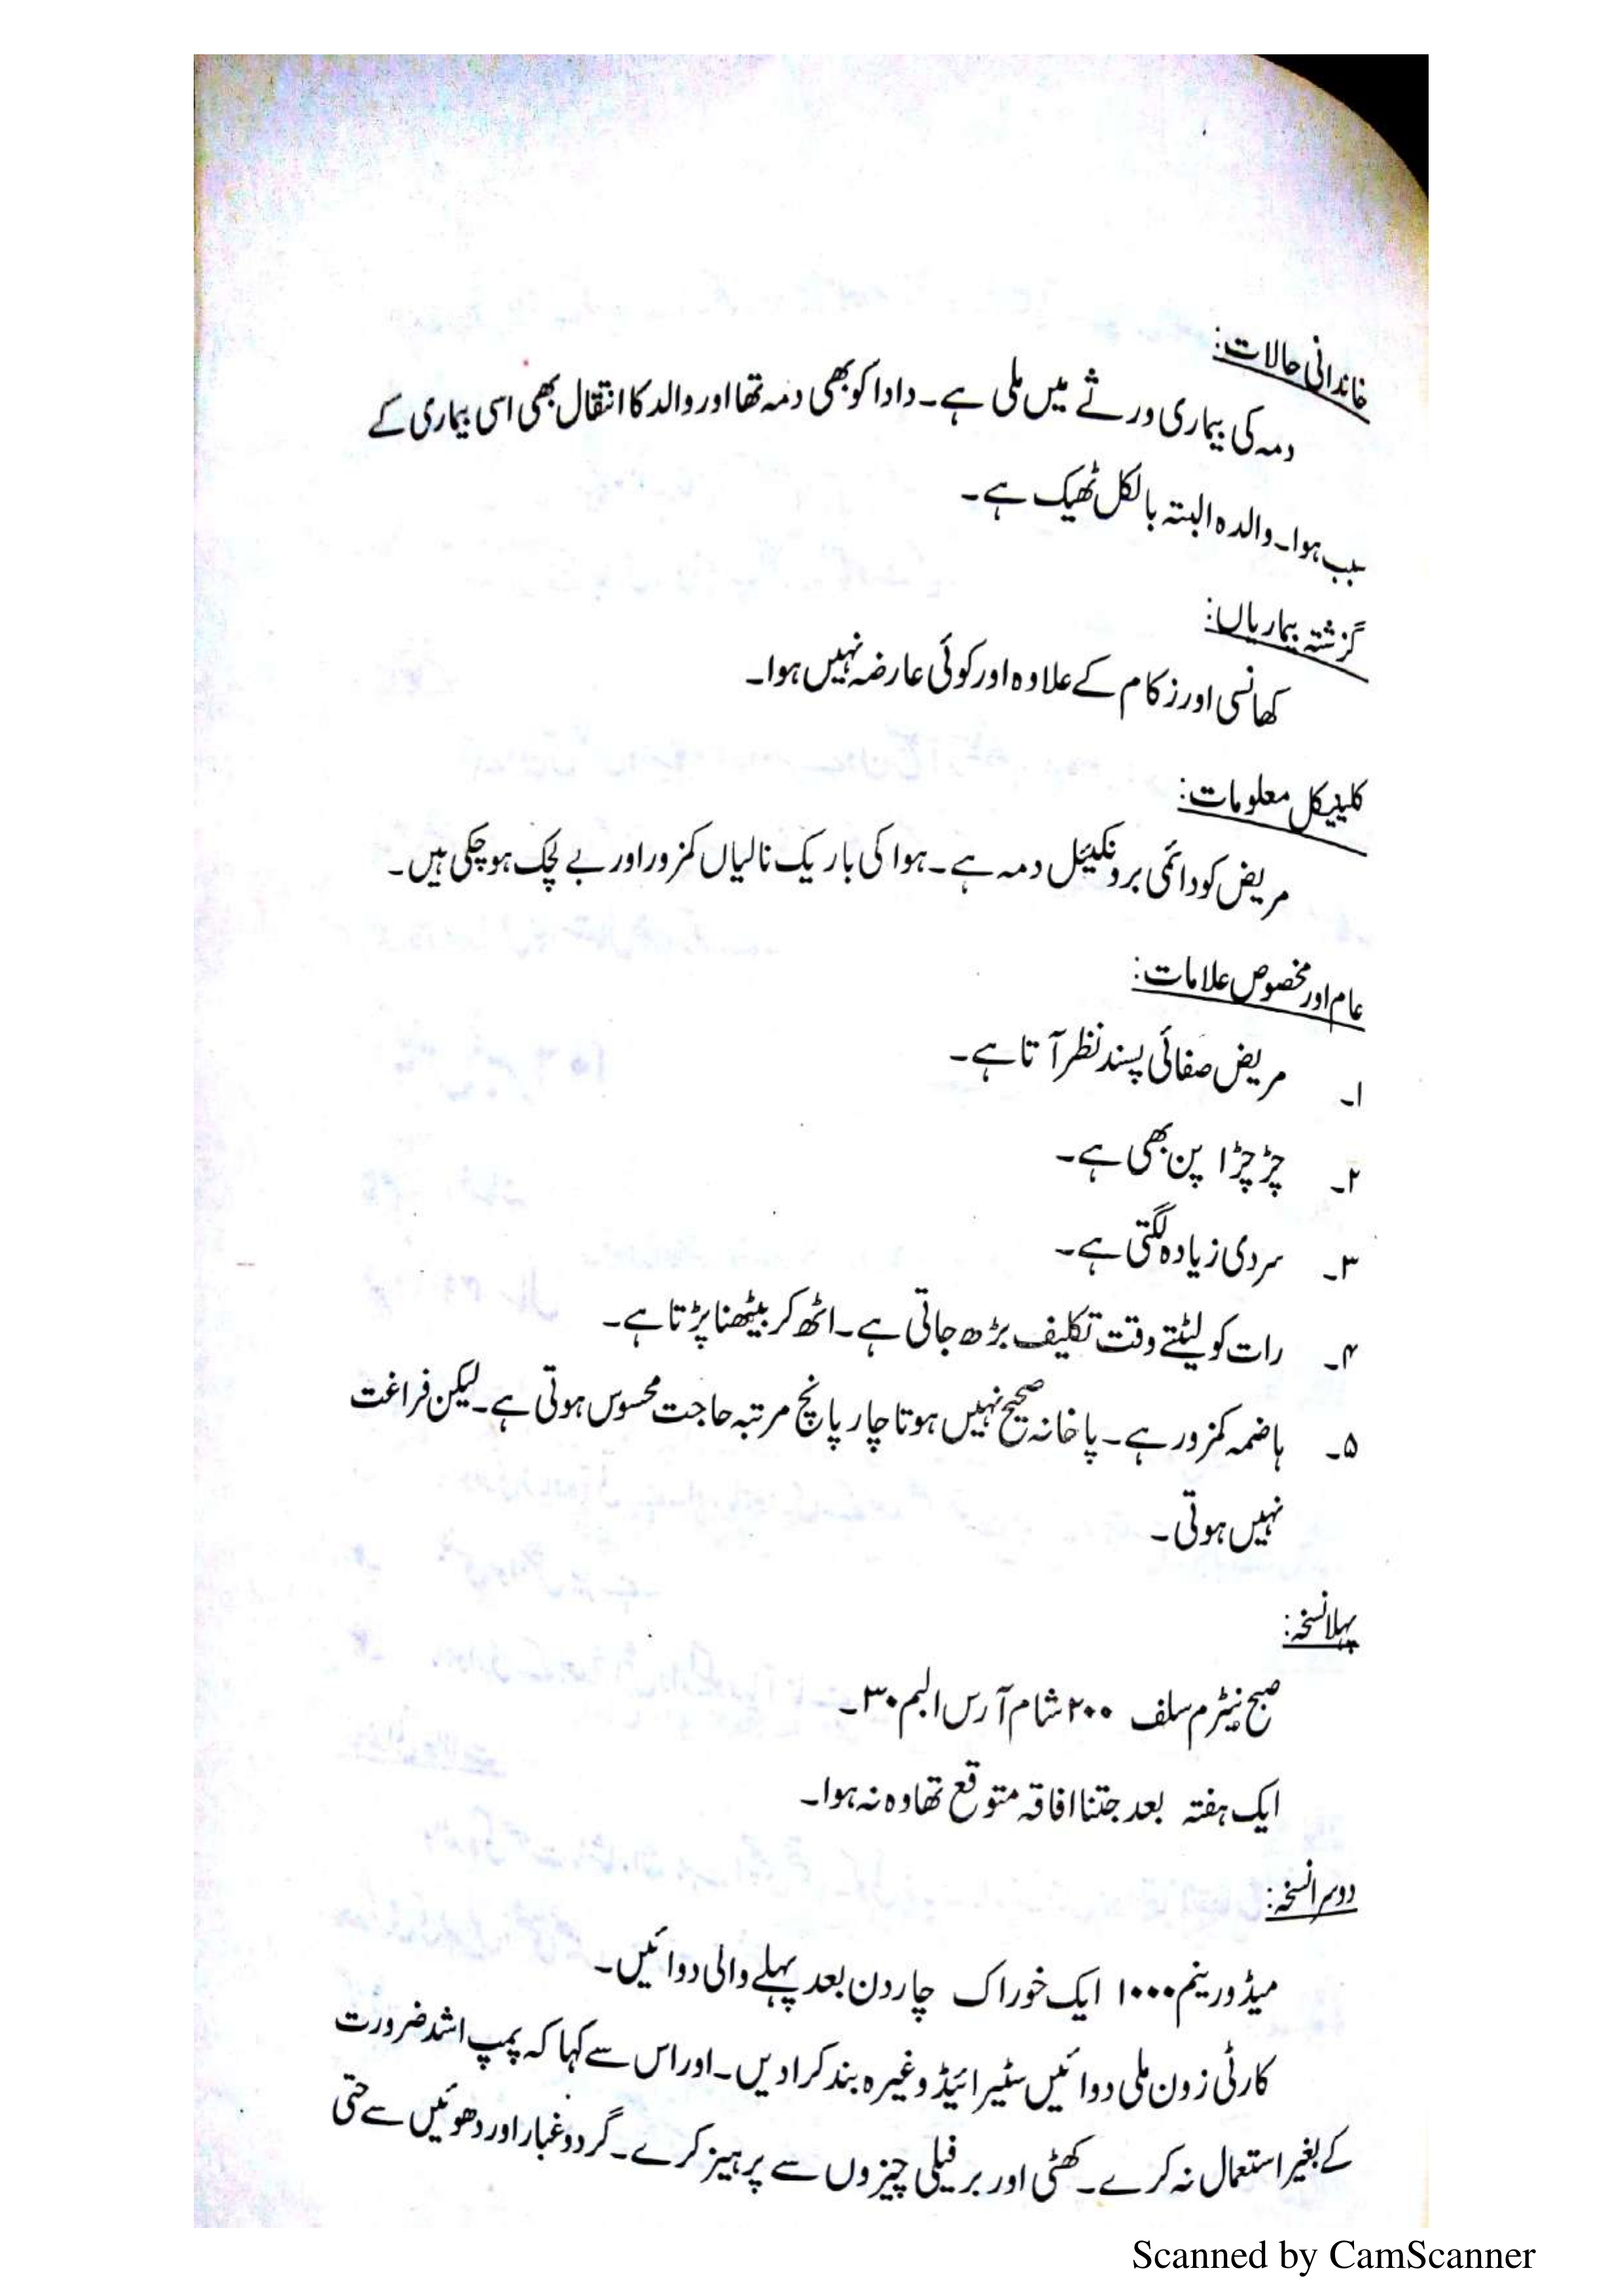 خاندانی حالات:
دمہ کی بیماری ورثے میں ملی ہے۔ دادا کو بھی دمہ تھا اور والد کا انتقال بھی اسی بیماری کے
سبب ہوا۔ والدہ البتہ بالکل ٹھیک ہے۔
گزشتہ بیماریاں:
کھانسی اور زکام کے علاوہ اور کوئی عارضہ نہیں ہوا۔
کلینیکل معلومات:
مریض کو دائمی برونکئیل دمہ ہے۔ ہوا کی باریک نالیاں کمزور اور بے لچک ہو چکی ہیں۔
عام اور مخصوص علامات:
۱۔ مریض صفائی پسند نظر آتا ہے۔
۲۔ چڑچڑا پن بھی ہے۔
۳۔ سردی زیادہ لگتی ہے۔
۴۔ رات کو لیٹتے وقت تکلیف بڑھ جاتی ہے۔ اٹھ کر بیٹھنا پڑتا ہے۔
۵۔ ہاضمہ کمزور ہے۔ پاخانہ صحیح نہیں ہوتا چار پانچ مرتبہ حاجت محسوس ہوتی ہے۔ لیکن فراغت
نہیں ہوتی۔
پہلا نسخہ:
صبح نیٹرم سلف ۲۰۰ شام آرس البم ۳۰۔
ایک ہفتہ بعد جتنا افاقہ متوقع تھا وہ نہ ہوا۔
دوسرا نسخہ:
میڈورینم ۱۰۰۰ ایک خوراک چار دن بعد پہلے والی دوائیں۔
کارٹی زون ملی دوائیں سٹیرائیڈ وغیرہ بند کرادیں۔ اور اس سے کہا کہ پمپ اشد ضرورت
کے بغیر استعمال نہ کرے۔ کھٹی اور برفیلی چیزوں سے پرہیز کرے۔ گردوغبار اور دھوئیں سے حتی
Scanned by CamScanner